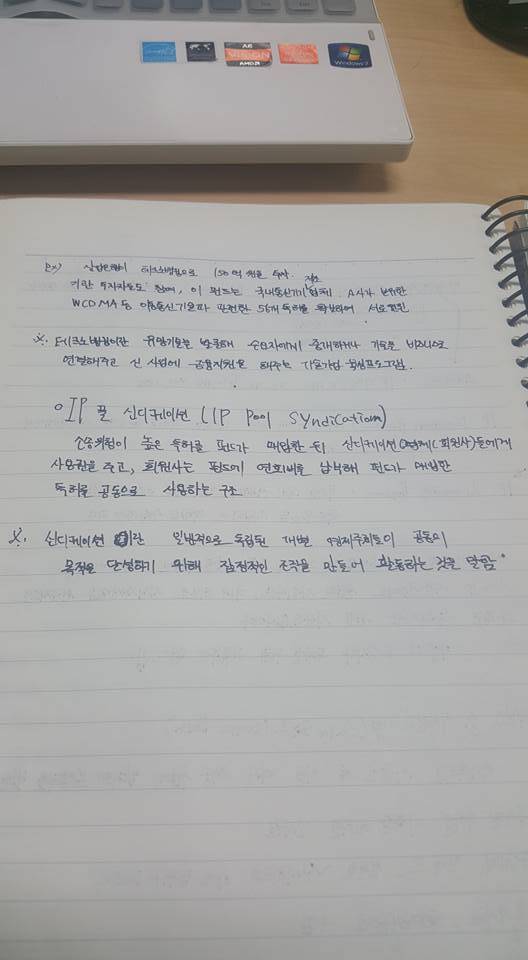 A6
VISION
AMD
Windows 7
ex) 산업은행이 테크노뱅킹으로 150억 원을 투자.
기관 투자자들도 참여, 이 펀드는 국내통신기기 제조 업체 A사가 보유한
WCDMA 등 이동통신기술과 관련한 56개 특허를 확보하여 서로
※. 테크노뱅킹이란 유망기술을 발굴해 수요자에게 중개하거나 기술을 비즈니스로
연결해주고 신 사업에 금융지원을 해주는 기술가업 육성프로그램.
○ IP 풀 신디케이션 (IP Pool Syndication)
소송위험이 높은 특허를 펀드가 매입한 뒤 신디케이션 업체(회원사)들에게
사용권을 주고, 회원사는 펀드에 연회비를 납부해 펀드가 매입한
특허를 공동으로 사용하는 구조
※. 신디케이션이란 일반적으로 독립된 개별 경제주체들이 공동의
목적을 달성하기 위해 잠정적인 조직을 만들어 활동하는 것을 말함.